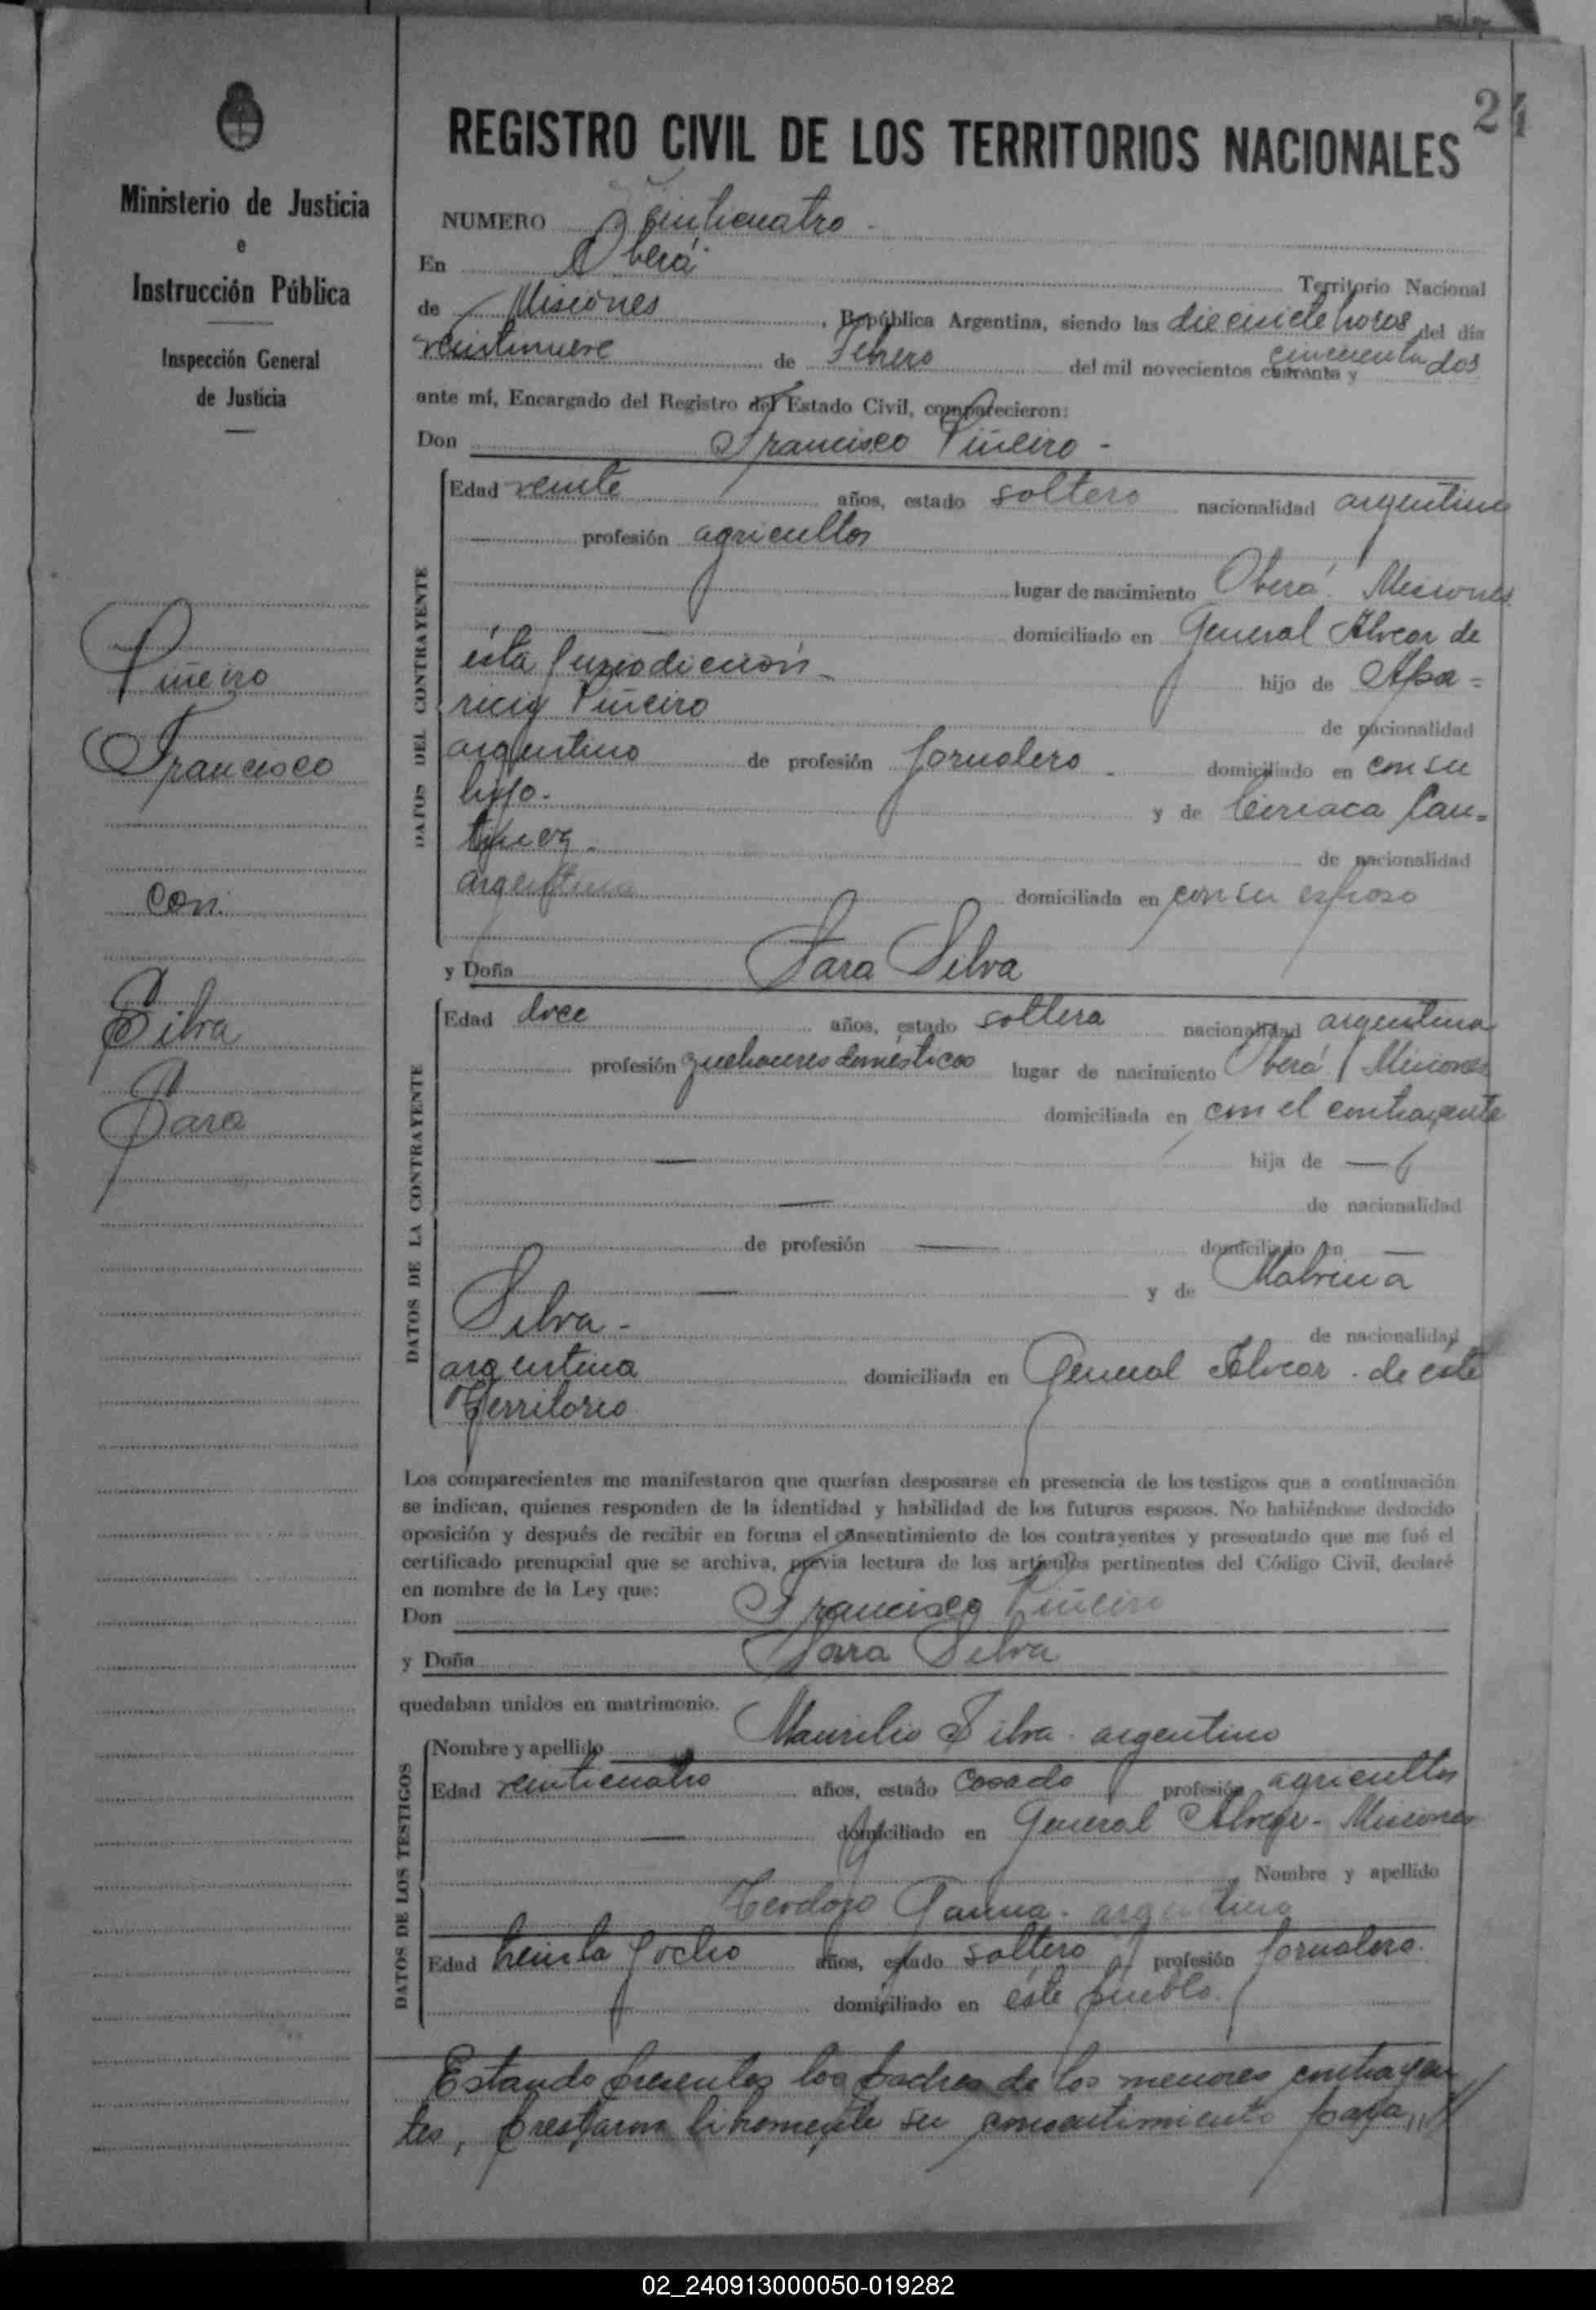 24
REGISTRO CIVIL DE LOS TERRITORIOS NACIONALES
Ministerio de Justicia
e
Instrucción Pública
Inspección General
de Justicia
Piñeiro
Francisco
con
Silva
Sara
NUMERO Veinticuatro -
En Oberá Territorio Nacional
de Misiones, República Argentina, siendo las diecisiete horas del día
veintinueve de Febrero del mil novecientos cuarenta y cincuenta dos
ante mí, Encargado del Registro del Estado Civil, comparecieron:
Don Francisco Piñeiro -
DATOS DEL CONTRAYENTE
Edad veinte años, estado soltero nacionalidad argentino
profesión agricultor
lugar de nacimiento Oberá Misiones
domiciliado en General Alvear de
ésta Jurisdicción - hijo de Apa=
ricio Piñeiro de nacionalidad
argentino de profesión Jornalero - domiciliado en con su
hijo - y de Ciriaca
de nacionalidad
argentina domiciliada en con su esposo
y Doña Sara Silva
DATOS DE LA CONTRAYENTE
Edad doce años, estado soltera nacionalidad argentina
profesión quehaceres domésticos lugar de nacimiento Oberá Misiones
domiciliada en con el contrayente
hija de —
de nacionalidad
de profesión — domiciliado en —
y de Malvina
Silva - de nacionalidad
argentina domiciliada en General Alvear - de éste
Territorio
Los comparecientes me manifestaron que querían desposarse en presencia de los testigos que a continuación
se indican, quienes responden de la identidad y habilidad de los futuros esposos. No habiéndose deducido
oposición y después de recibir en forma el consentimiento de los contrayentes y presentado que me fué el
certificado prenupcial que se archiva, previa lectura de los artículos pertinentes del Código Civil, declaré
en nombre de la Ley que:
Don Francisco Piñeiro
y Doña Sara Silva
quedaban unidos en matrimonio.
DATOS DE LOS TESTIGOS
Nombre y apellido Maurilio Silva - argentino
Edad veinticuatro años, estado casado profesión agricultor
domiciliado en General Alvear - Misiones
Nombre y apellido
Teodoro - argentino
Edad treinta y ocho años, estado soltero profesión jornalero.
domiciliado en éste pueblo.
Estando presentes los padres de los menores contrayen
tes, prestaron libremente su consentimiento para,,//
02_240913000050-019282